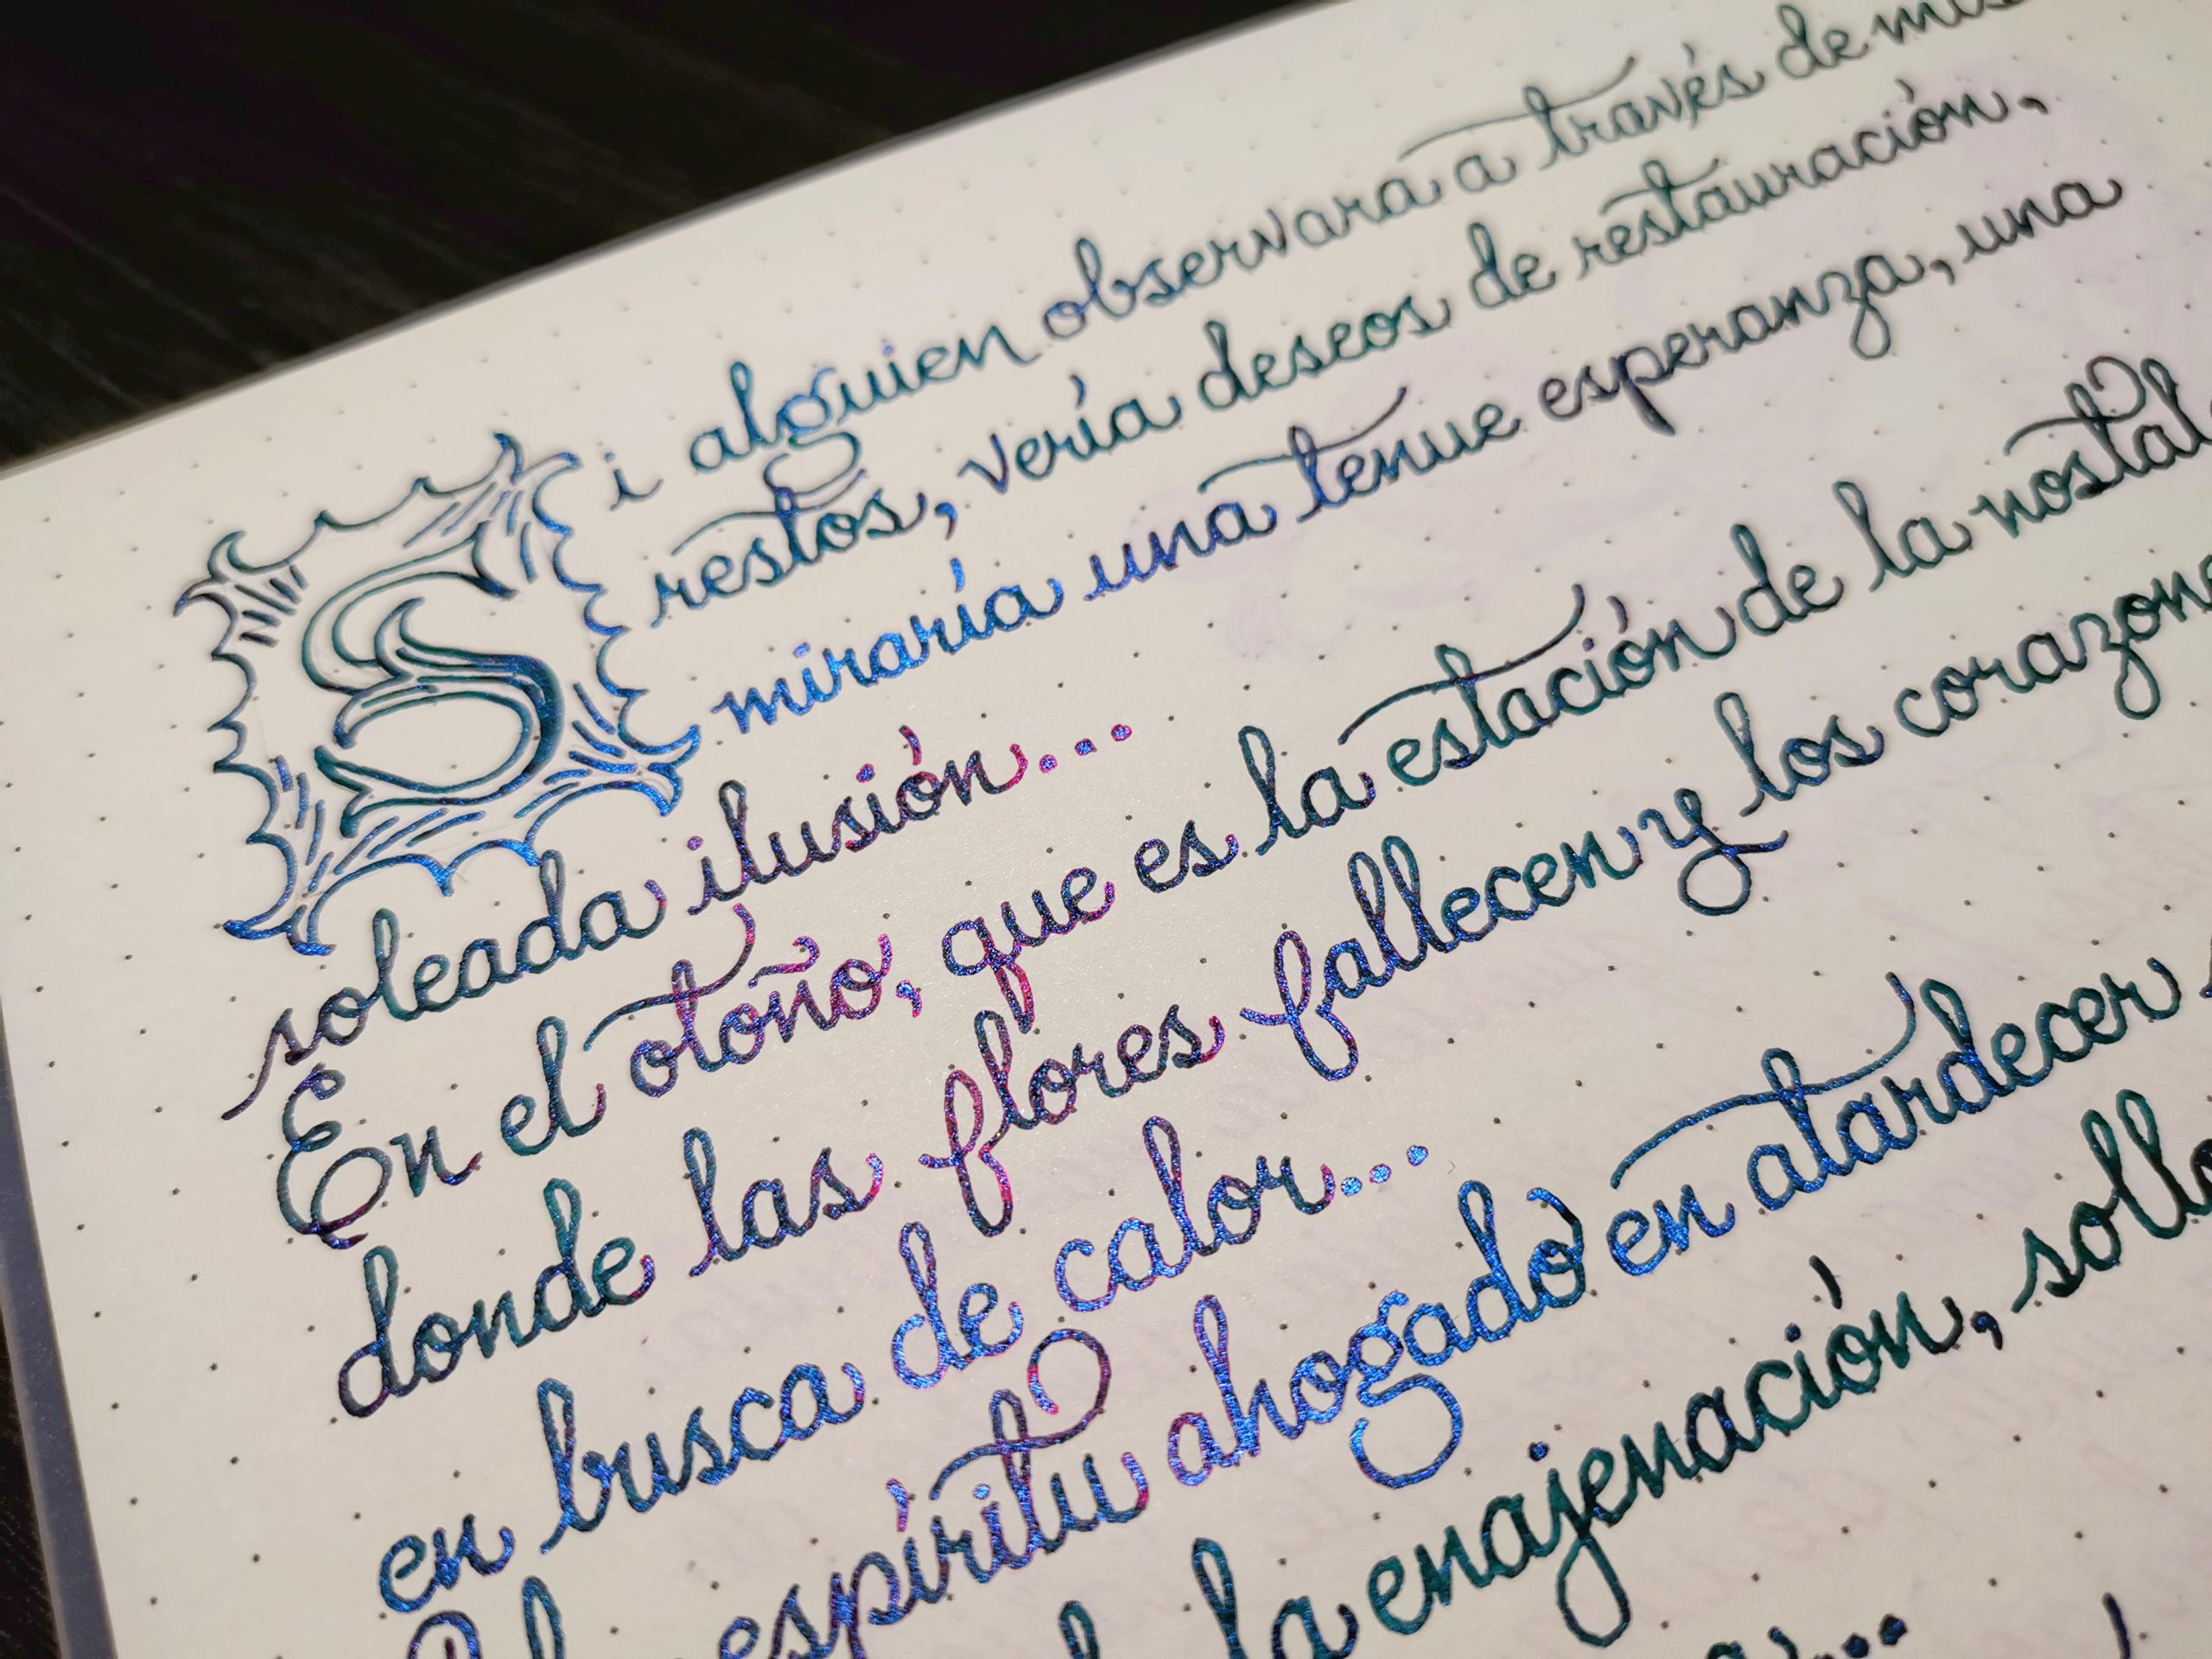 Si alguien observara a través de mis
restos, vería deseos de restauración,
miraría una tenue esperanza, una
soleada ilusión...
En el otoño, que es la estación de la
donde las flores fallecen y los
en busca de calor...
espíritu ahogado en atardecer
la enajenación,